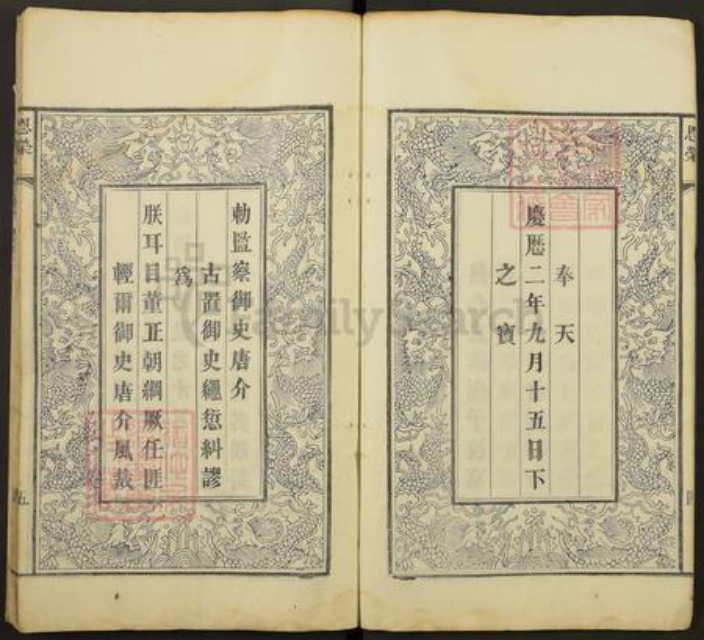 奉天
慶曆二年九月十五日下
之寶
恩榮
勅監察御史唐介
古置御史繩愆糾謬
為
朕耳目董正朝綱厥任匪
輕爾御史唐介風裁
恩榮
五
FamilySearch